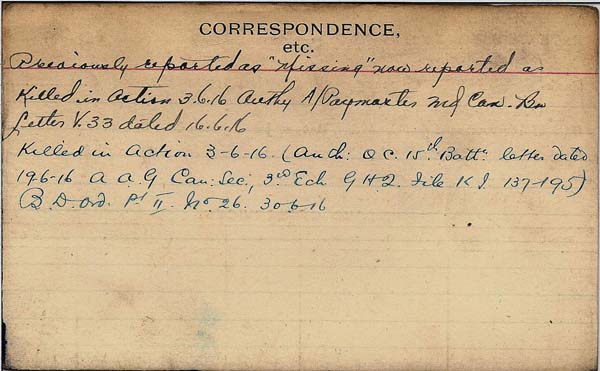 CORRESPONDENCE,
etc.
Previously reported as "Missing" now reported as
Killed in action 3.6.16 Authy A/Paymaster Can. Bn
Letter V.33 dated 16.6.16
Killed in Action 3-6-16. (Auth: O.C. 15th Battn. letter dated
19-6-16 A.A.G Can: Sec:, 3rd Ech. G.H.Q. File K.J. 137-195)
B.D. Ord. Pt II. No 26. 30-6-16